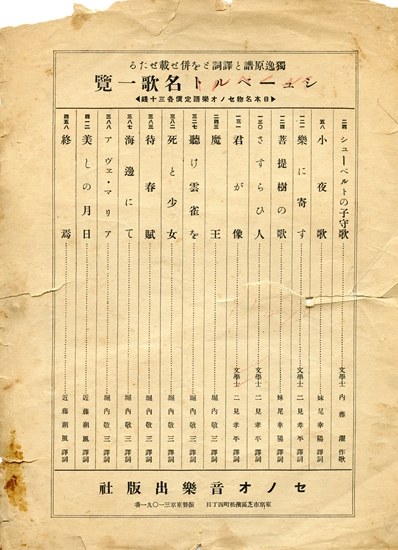 るたせ載せ併とを詞譯と譜原逸獨
覽一歌名トルベーュシ
◀錢十三各價定譜樂オノセ物名本日▶
二四 シューベルトの子守歌 文學士 內藤濯作歌
五八 小夜歌 妹尾幸陽譯詞
一二一 樂に寄す 文學士 二見孝平譯詞
一二四 菩提樹の歌 妹尾幸陽譯詞
一三〇 さすらひ人 文學士 二見孝平譯詞
一三一 君が像 文學士 二見孝平譯詞
二四三 魔王 堀內敬三譯詞
三二七 聽け雲雀を 堀內敬三譯詞
三八二 死と少女 堀內敬三譯詞
三八三 待春賦 堀內敬三譯詞
三八七 海邊にて 堀內敬三譯詞
三八八 アヴェ・マリア 堀內敬三譯詞
四一二 美しの月日 近藤朔風譯詞
四五八 終焉 近藤朔風譯詞
社版出樂音オノセ
目丁四町松濱區芝市京東
番一九〇一三京東替振